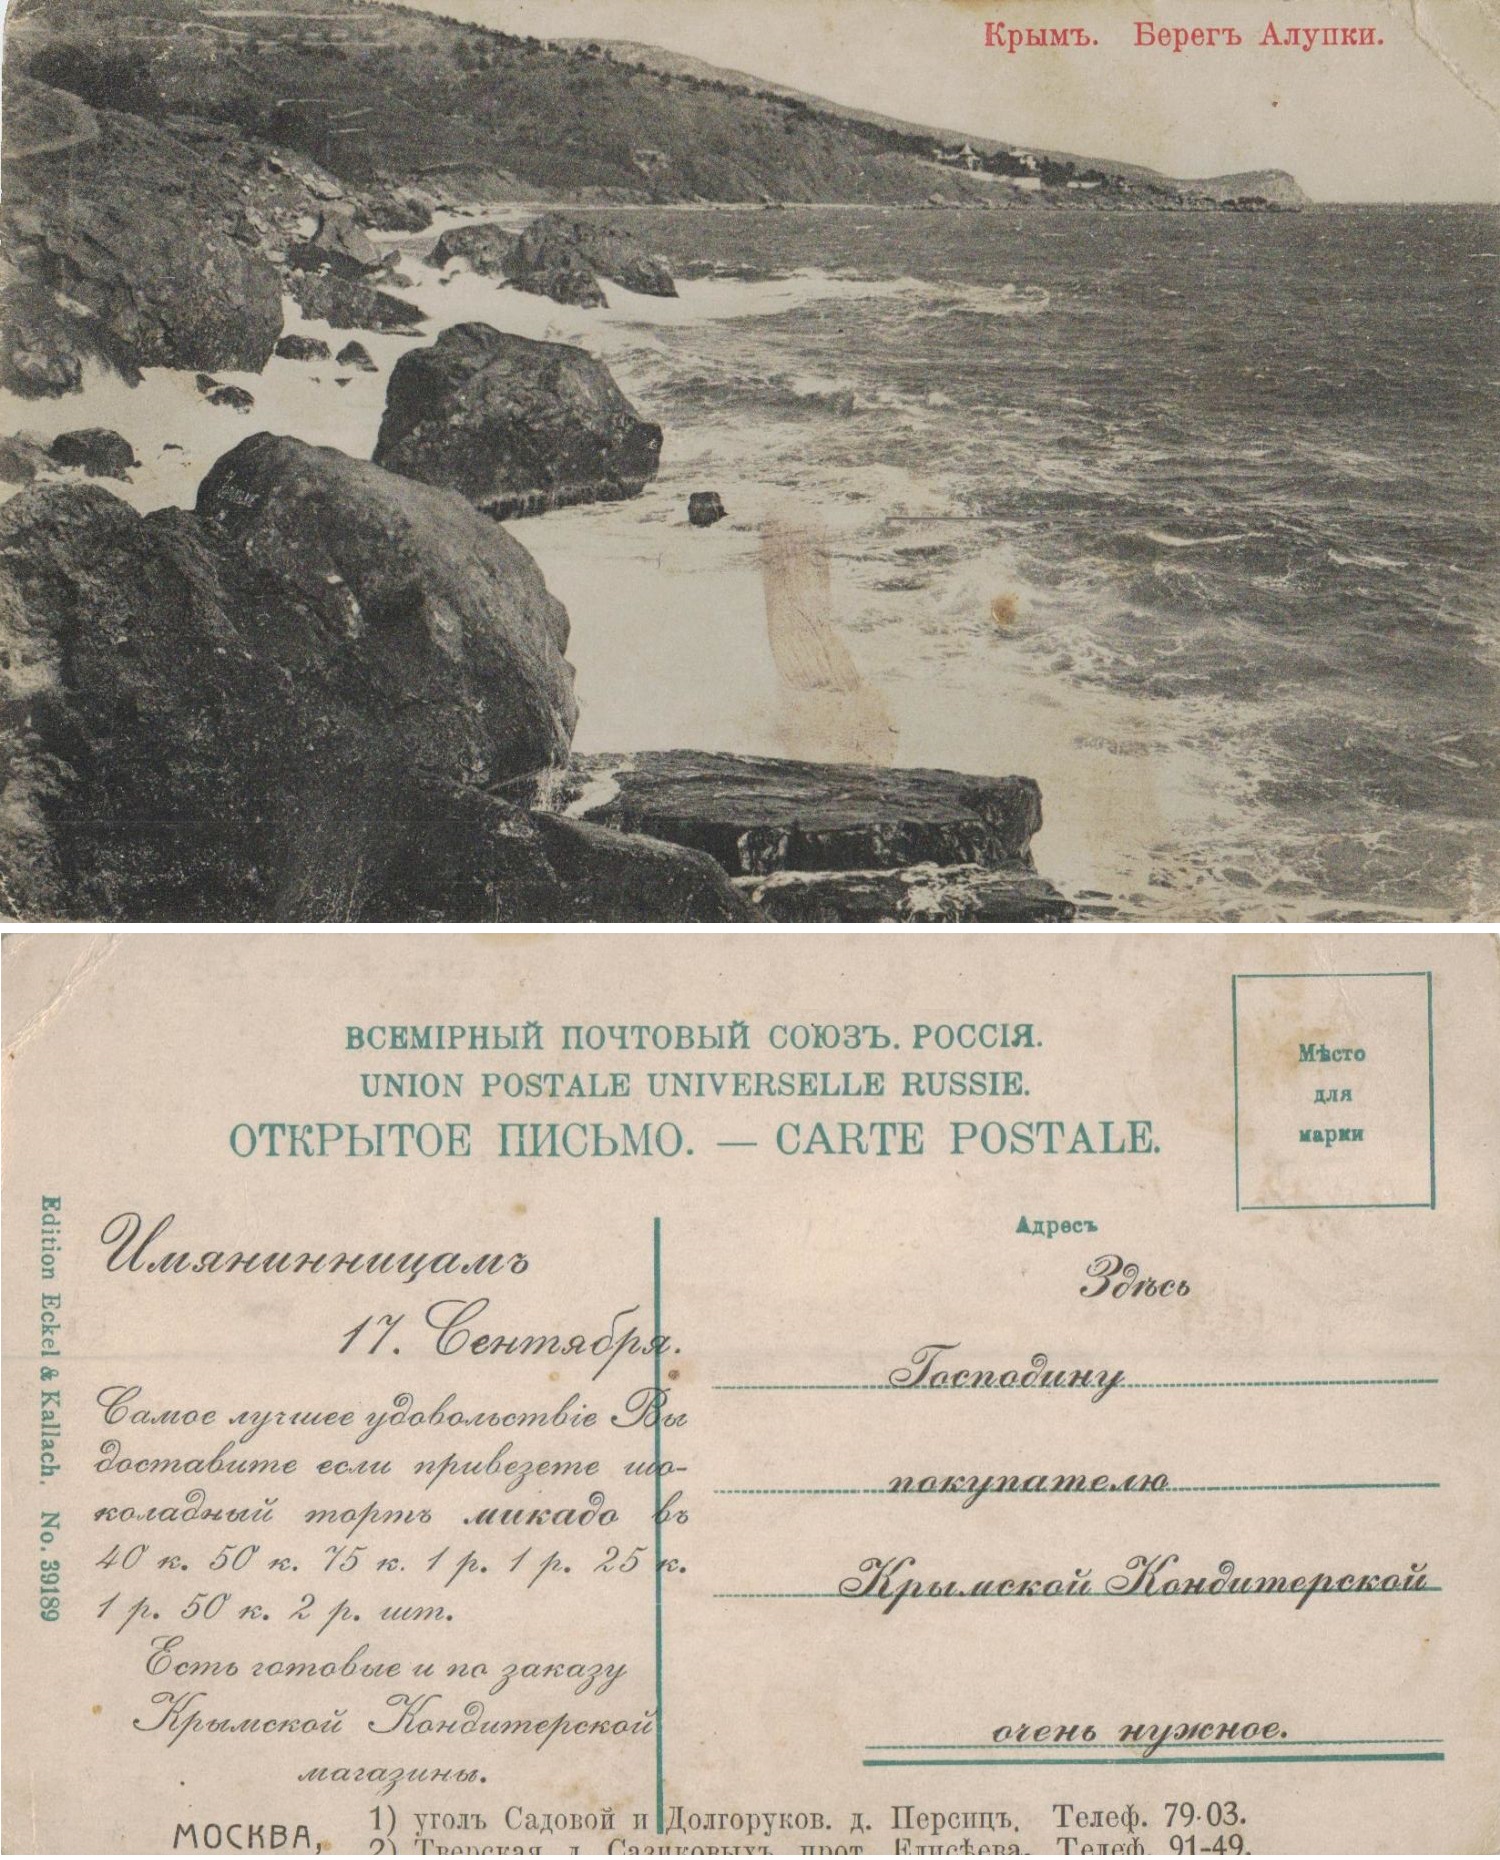 Крымъ. Берегъ Алупки.
ВСЕМІРНЫЙ ПОЧТОВЫЙ СОЮЗЪ. РОССІЯ.
UNION POSTALE UNIVERSELLE RUSSIE.
ОТКРЫТОЕ ПИСЬМО. — CARTE POSTALE.
Мѣсто
для
марки
Edition Eckel & Kallach. No. 39189
Имянинницамъ
17. Сентября.
Самое лучшее удовольствіе Вы
доставите если привезете шо-
коладный тортъ микадо въ
40 к. 50 к. 75 к. 1 р. 1 р. 25 к.
1 р. 50 к. 2 р. шт.
Есть готовые и по заказу
Крымской Кондитерской
магазины.
Адресъ
Здѣсь
Господину
покупателю
Крымской Кондитерской
очень нужное.
МОСКВА,
1) уголъ Садовой и Долгоруков. д. Персицъ. Телеф. 79-03.
2) Тверская д. Сазиковыхъ прот. Елисѣева. Телеф. 91-49.